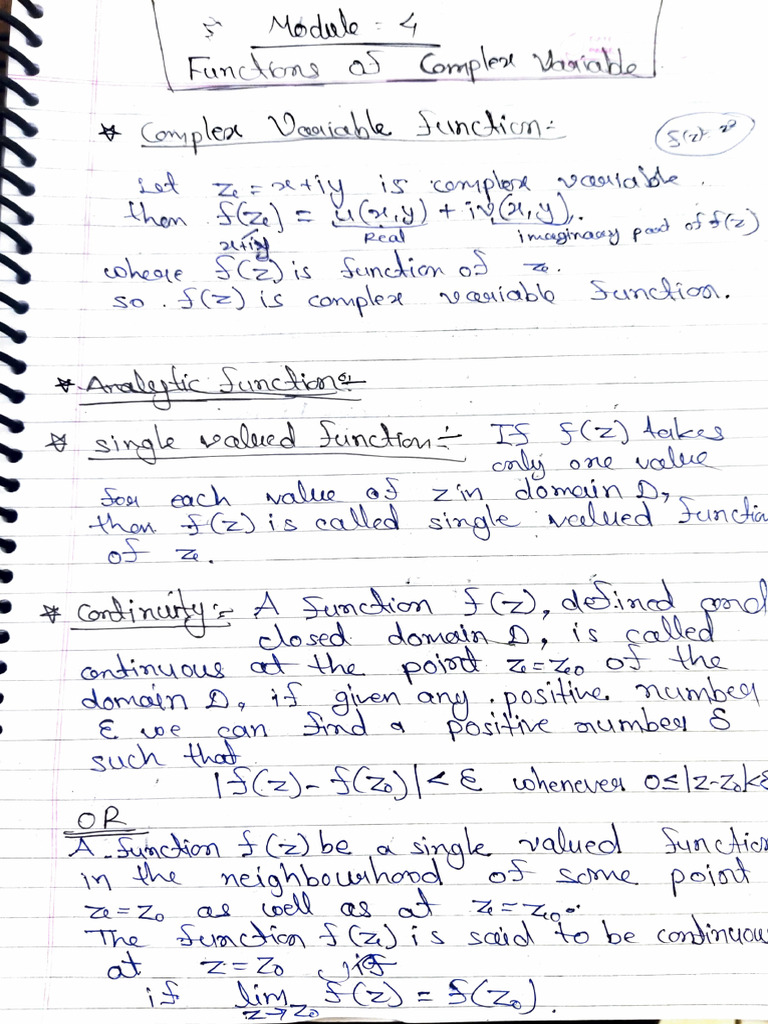 Module = 4
Functions of Complex Variable
* Complex Variable Function:-
Let z = x+iy is complex variable.
then f(z) = u(x,y) + iv(x,y).
x+iy Real imaginary part of f(z)
where f(z) is function of z.
so f(z) is complex variable function.
* Analytic function:-
* single valued function:- If f(z) takes
only one value
for each value of z in domain D,
then f(z) is called single valued function
of z.
* Continuity:- A function f(z), defined and
closed domain D, is called
continuous at the point z=z₀ of the
domain D, if given any positive number
ε we can find a positive number δ
such that
|f(z) - f(z₀)| < ε whenever 0≤|z-z₀|<δ
OR
A function f(z) be a single valued function
in the neighbourhood of some point
z=z₀ as well as at z=z₀.
The function f(z) is said to be continuous
at z=z₀
if lim f(z) = f(z₀).
z→z₀